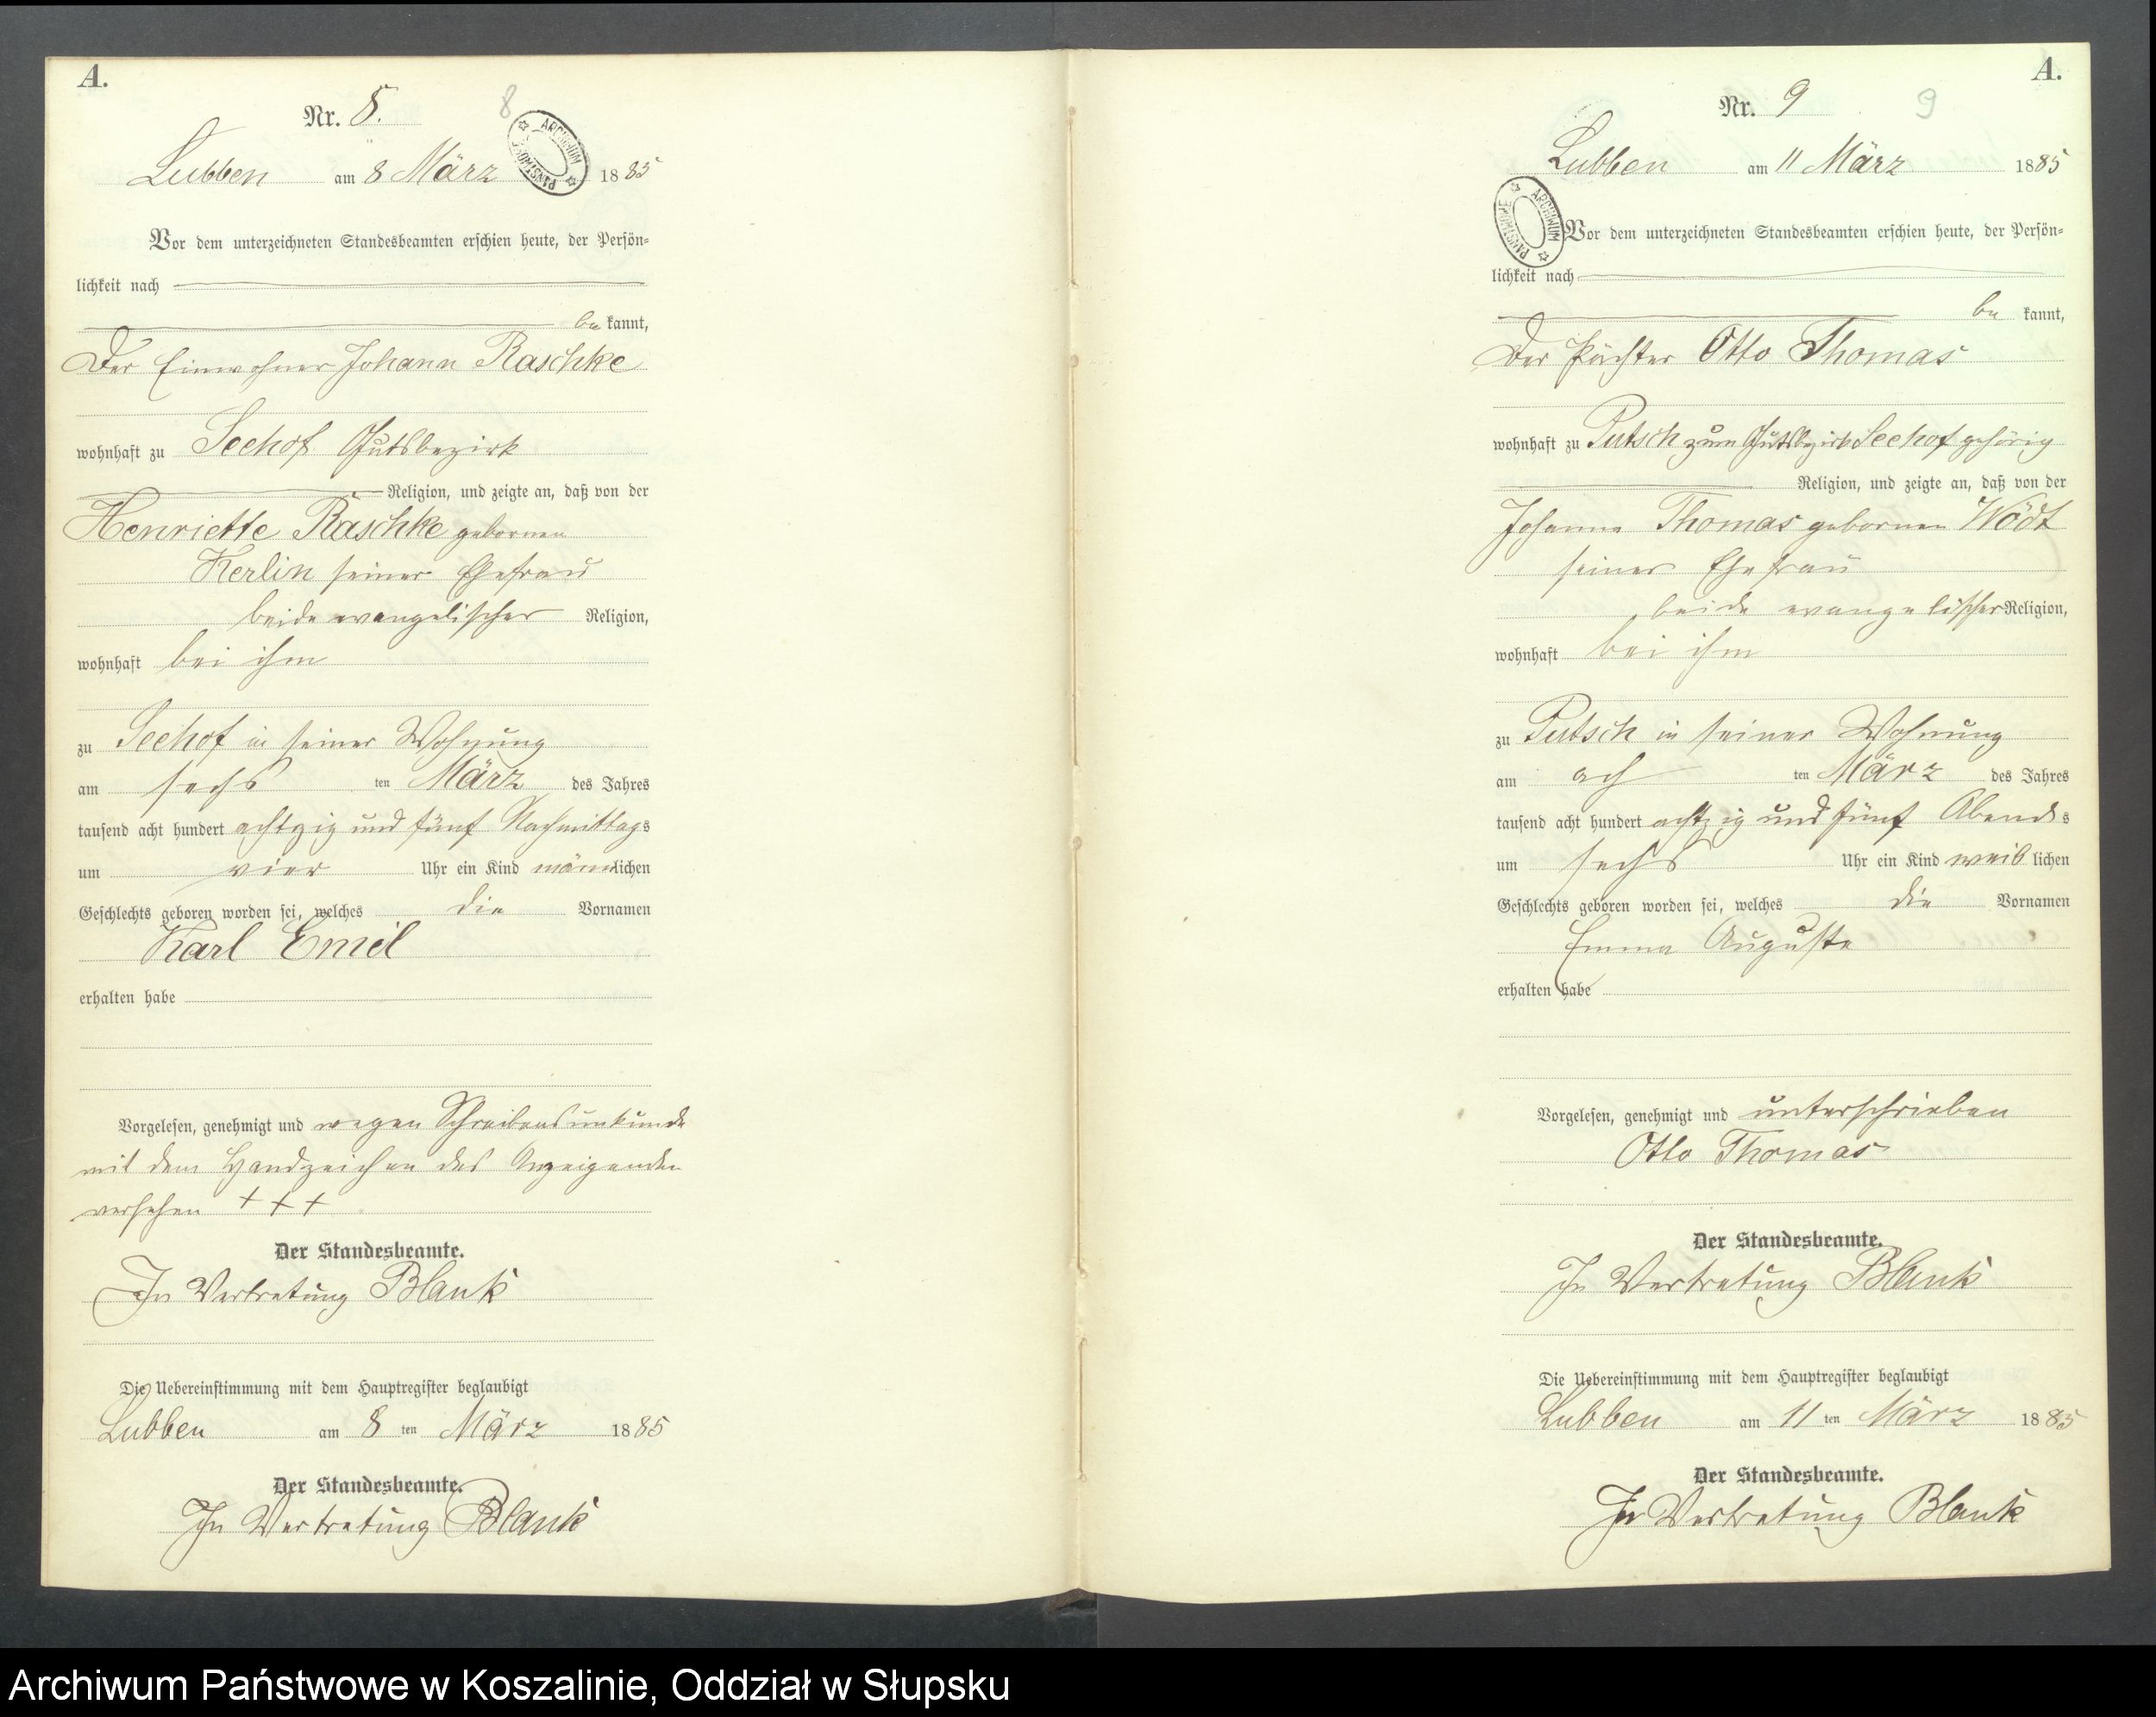 A.
Nr. 8.
8
ARCHIWUM PAŃSTWOWE
Lubben am 8 März 1885
Vor dem unterzeichneten Standesbeamten erschien heute, der Persön-
lichkeit nach
be kannt,
Der Einwohner Johann Raschke
wohnhaft zu Seehof Gutsbezirk
Religion, und zeigte an, daß von der
Henriette Raschke gebornen
Kerlin seiner Ehefrau
beide evangelischer Religion,
wohnhaft bei ihm
zu Seehof in seiner Wohnung
am sechs ten März des Jahres
tausend acht hundert achtzig und fünf Nachmittags
um vier Uhr ein Kind männlichen
Geschlechts geboren worden sei, welches die Vornamen
Karl Emil
erhalten habe
Vorgelesen, genehmigt und wegen Schreibensunkunde
mit dem Handzeichen des Anzeigenden
versehen + + +
Der Standesbeamte.
In Vertretung Blank
Die Uebereinstimmung mit dem Hauptregister beglaubigt
Lubben am 8 ten März 1885
Der Standesbeamte.
In Vertretung Blank
A.
Nr. 9
9
Lubben am 11 März 1885
ARCHIWUM PAŃSTWOWE
Vor dem unterzeichneten Standesbeamten erschien heute, der Persön-
lichkeit nach
be kannt,
Der Pächter Otto Thomas
wohnhaft zu Putsch zum Gutsbezirk Seehof gehörig
Religion, und zeigte an, daß von der
Johanna Thomas gebornen Wödt
seiner Ehefrau
beide evangelischer Religion,
wohnhaft bei ihm
zu Putsch in seiner Wohnung
am ach ten März des Jahres
tausend acht hundert achtzig und fünf Abends
um sechs Uhr ein Kind weiblichen
Geschlechts geboren worden sei, welches die Vornamen
Emma Auguste
erhalten habe
Vorgelesen, genehmigt und unterschrieben
Otto Thomas
Der Standesbeamte.
In Vertretung Blank
Die Uebereinstimmung mit dem Hauptregister beglaubigt
Lubben am 11 ten März 1885
Der Standesbeamte.
In Vertretung Blank
Archiwum Państwowe w Koszalinie, Oddział w Słupsku